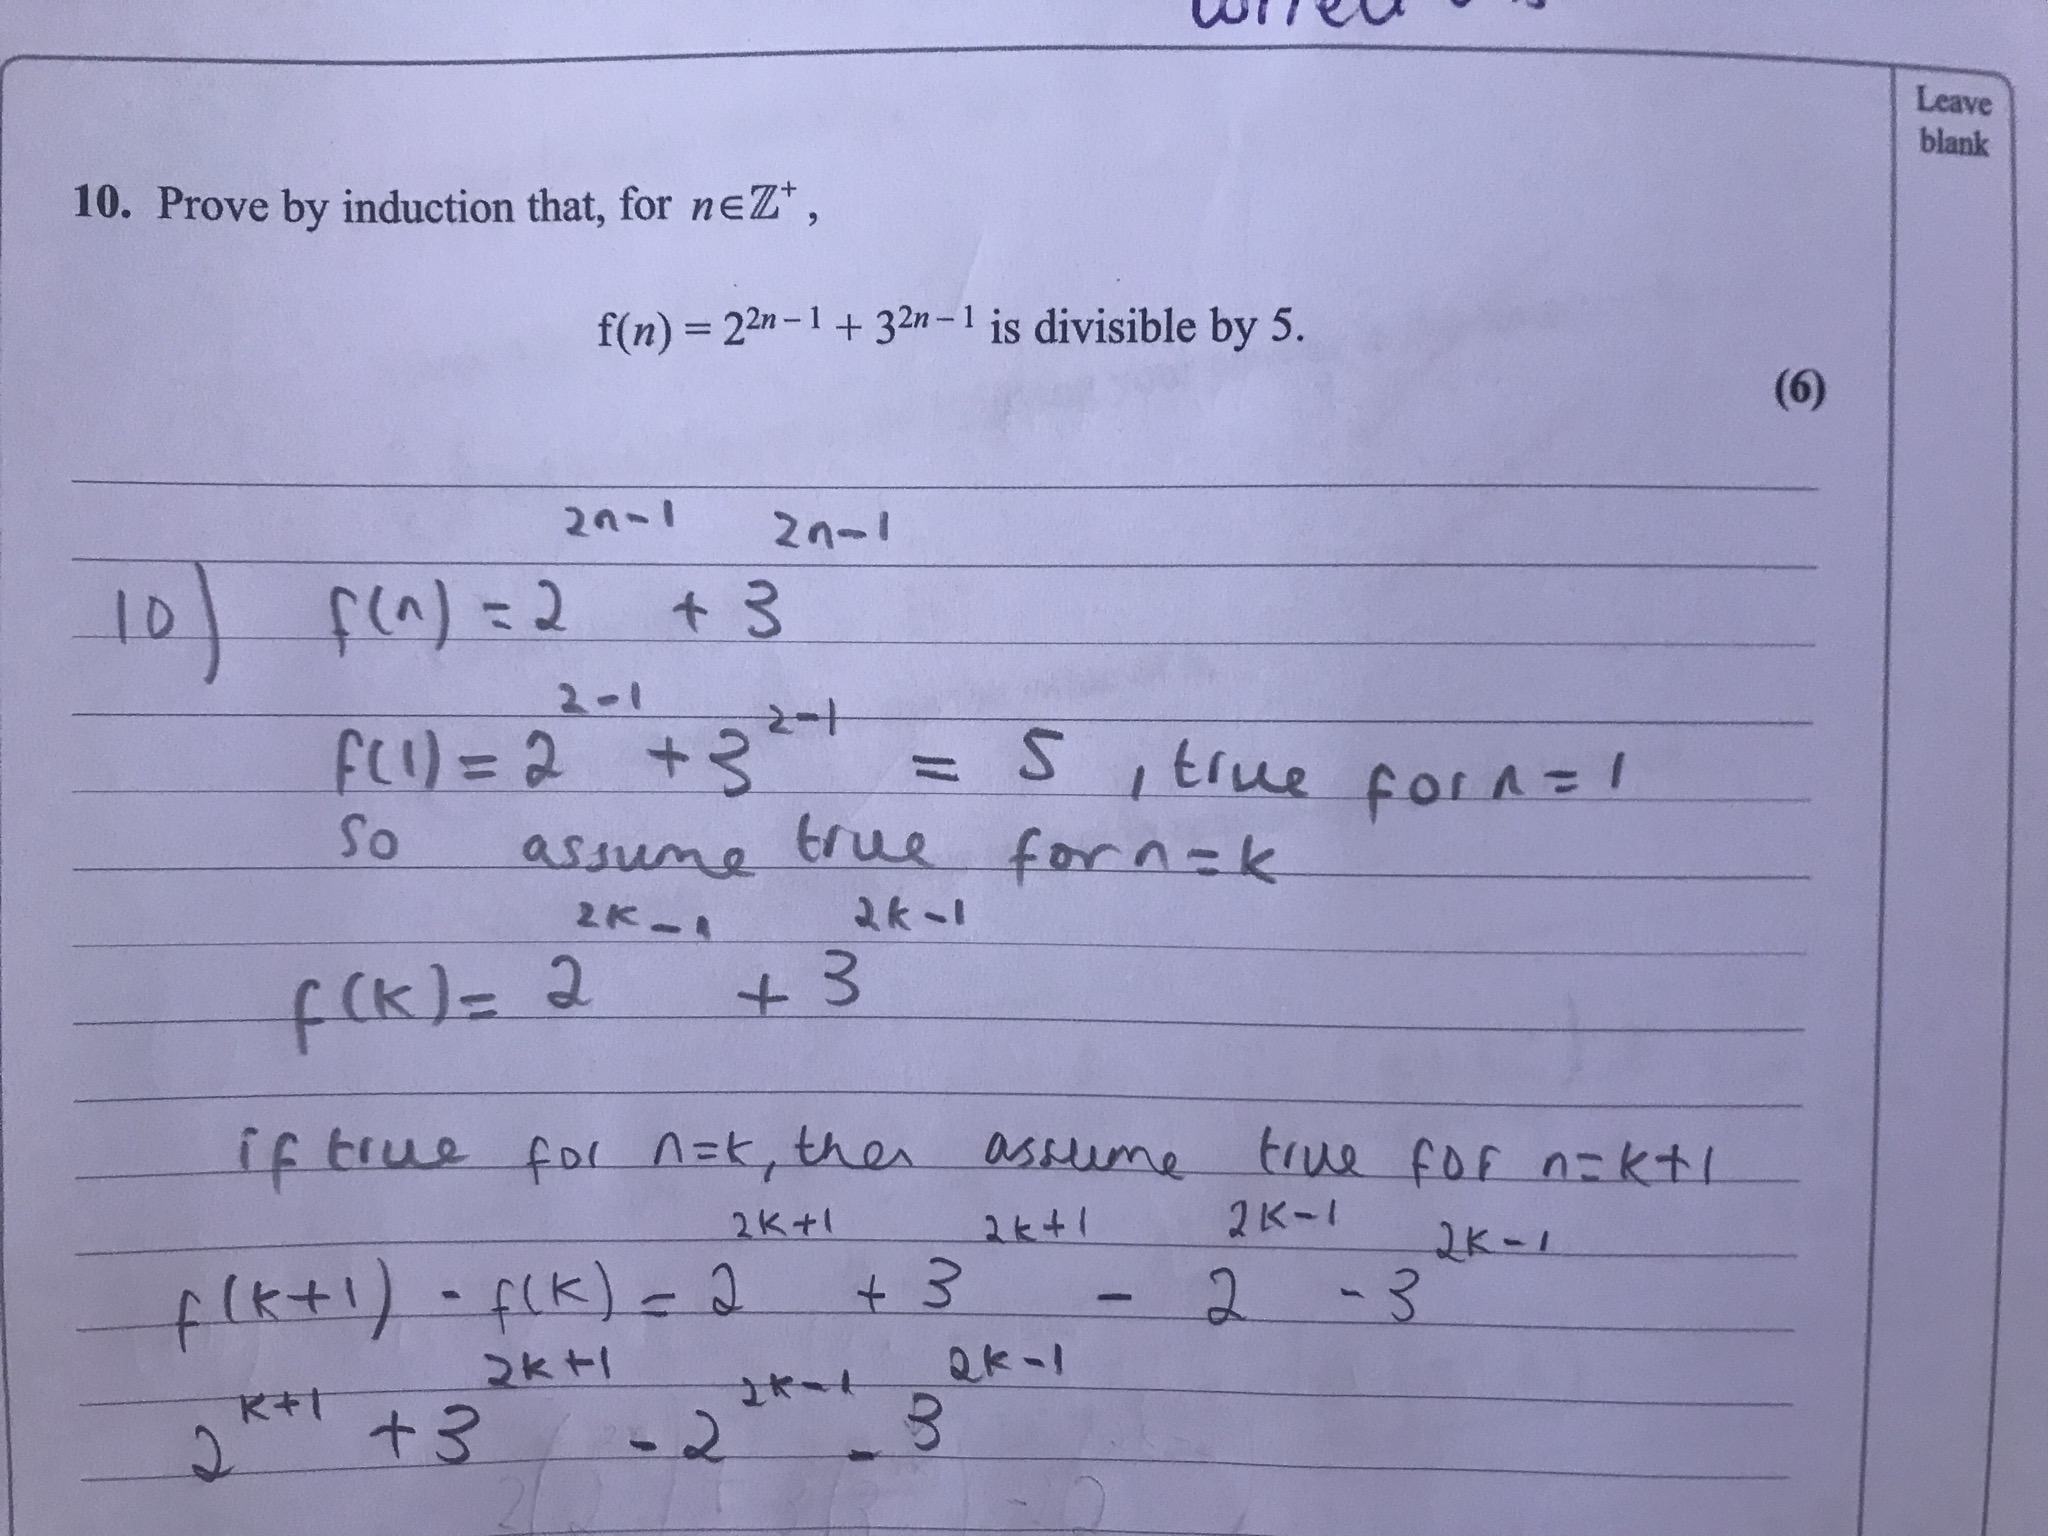 Leave
blank
10. Prove by induction that, for n∈ℤ⁺,
f(n) = 2²ⁿ⁻¹ + 3²ⁿ⁻¹ is divisible by 5.
(6)
10) f(n) = 2²ⁿ⁻¹ + 3²ⁿ⁻¹
f(1) = 2²⁻¹ + 3²⁻¹ = 5, true for n=1
so assume true for n=k
f(k) = 2²ᵏ⁻¹ + 3²ᵏ⁻¹
if true for n=k, then assume true for n=k+1
f(k+1) - f(k) = 2²ᵏ⁺¹ + 3²ᵏ⁺¹ - 2²ᵏ⁻¹ - 3²ᵏ⁻¹
2ᵏ⁺¹ + 3²ᵏ⁺¹ - 2²ᵏ⁻¹ - 3²ᵏ⁻¹